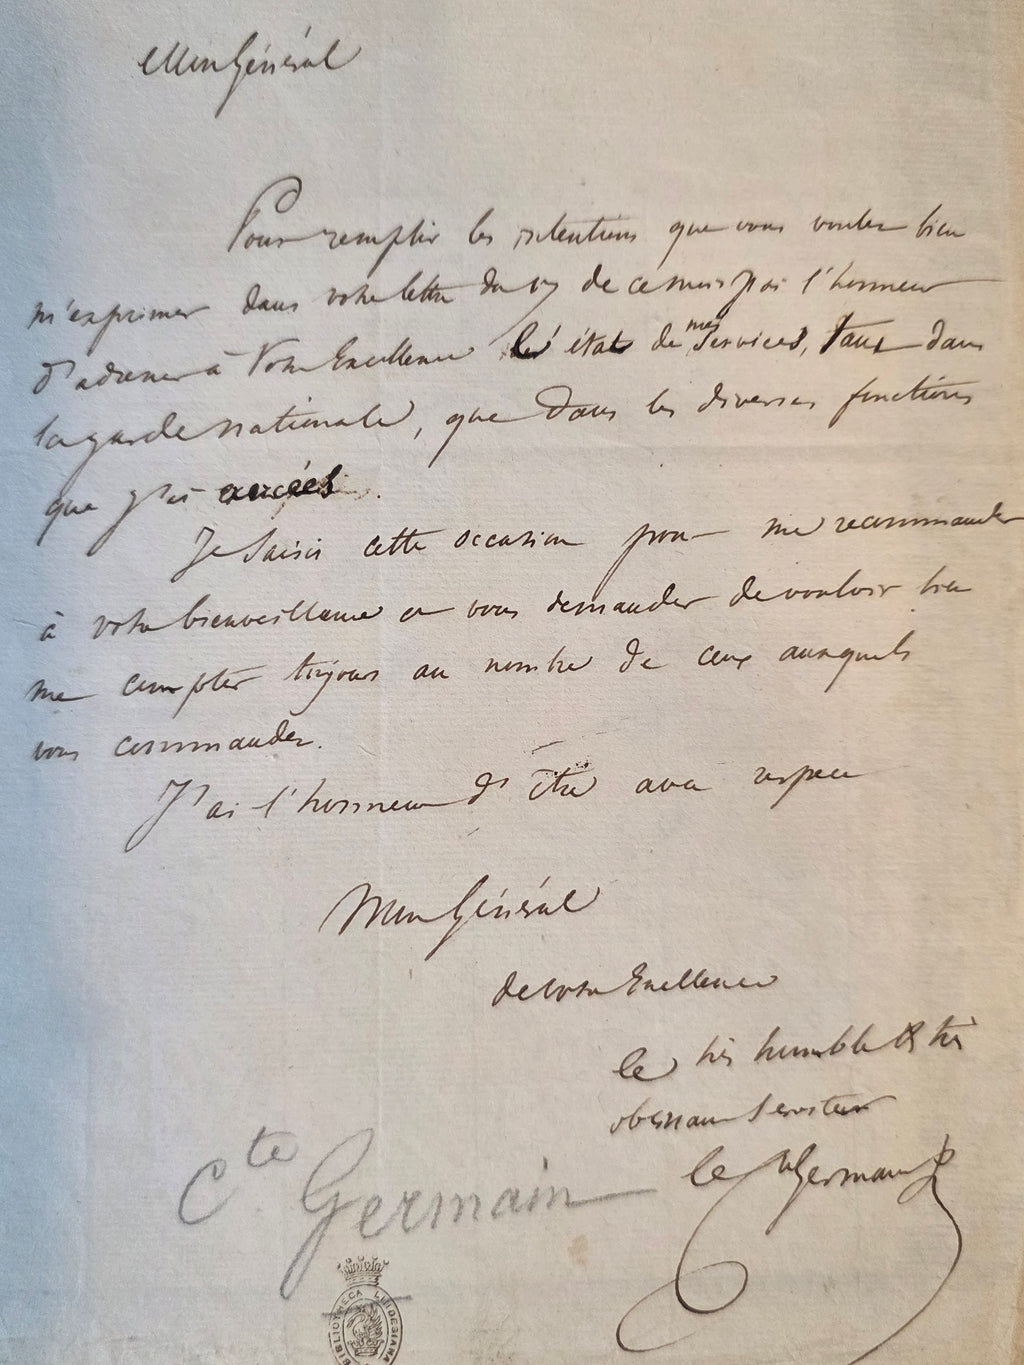 Mon Général
Pour remplir les intentions que vous voulez bien
m'exprimer dans votre lettre du 17 de ce mois j'ai l'honneur
d'adresser à Votre Excellence les états de mes services, tant dans
la garde nationale, que dans les diverses fonctions
que j'ai exercées.
Je saisis cette occasion pour me recommander
à votre bienveillance et vous demander de vouloir bien
me compter toujours au nombre de ceux auxquels
vous commandez.
J'ai l'honneur d'être avec respect
Mon Général
de votre Excellence
le très humble & très
obéissant Serviteur
le Cte Germain
Cte Germain
BIBLIOTHECA LINDESIANA